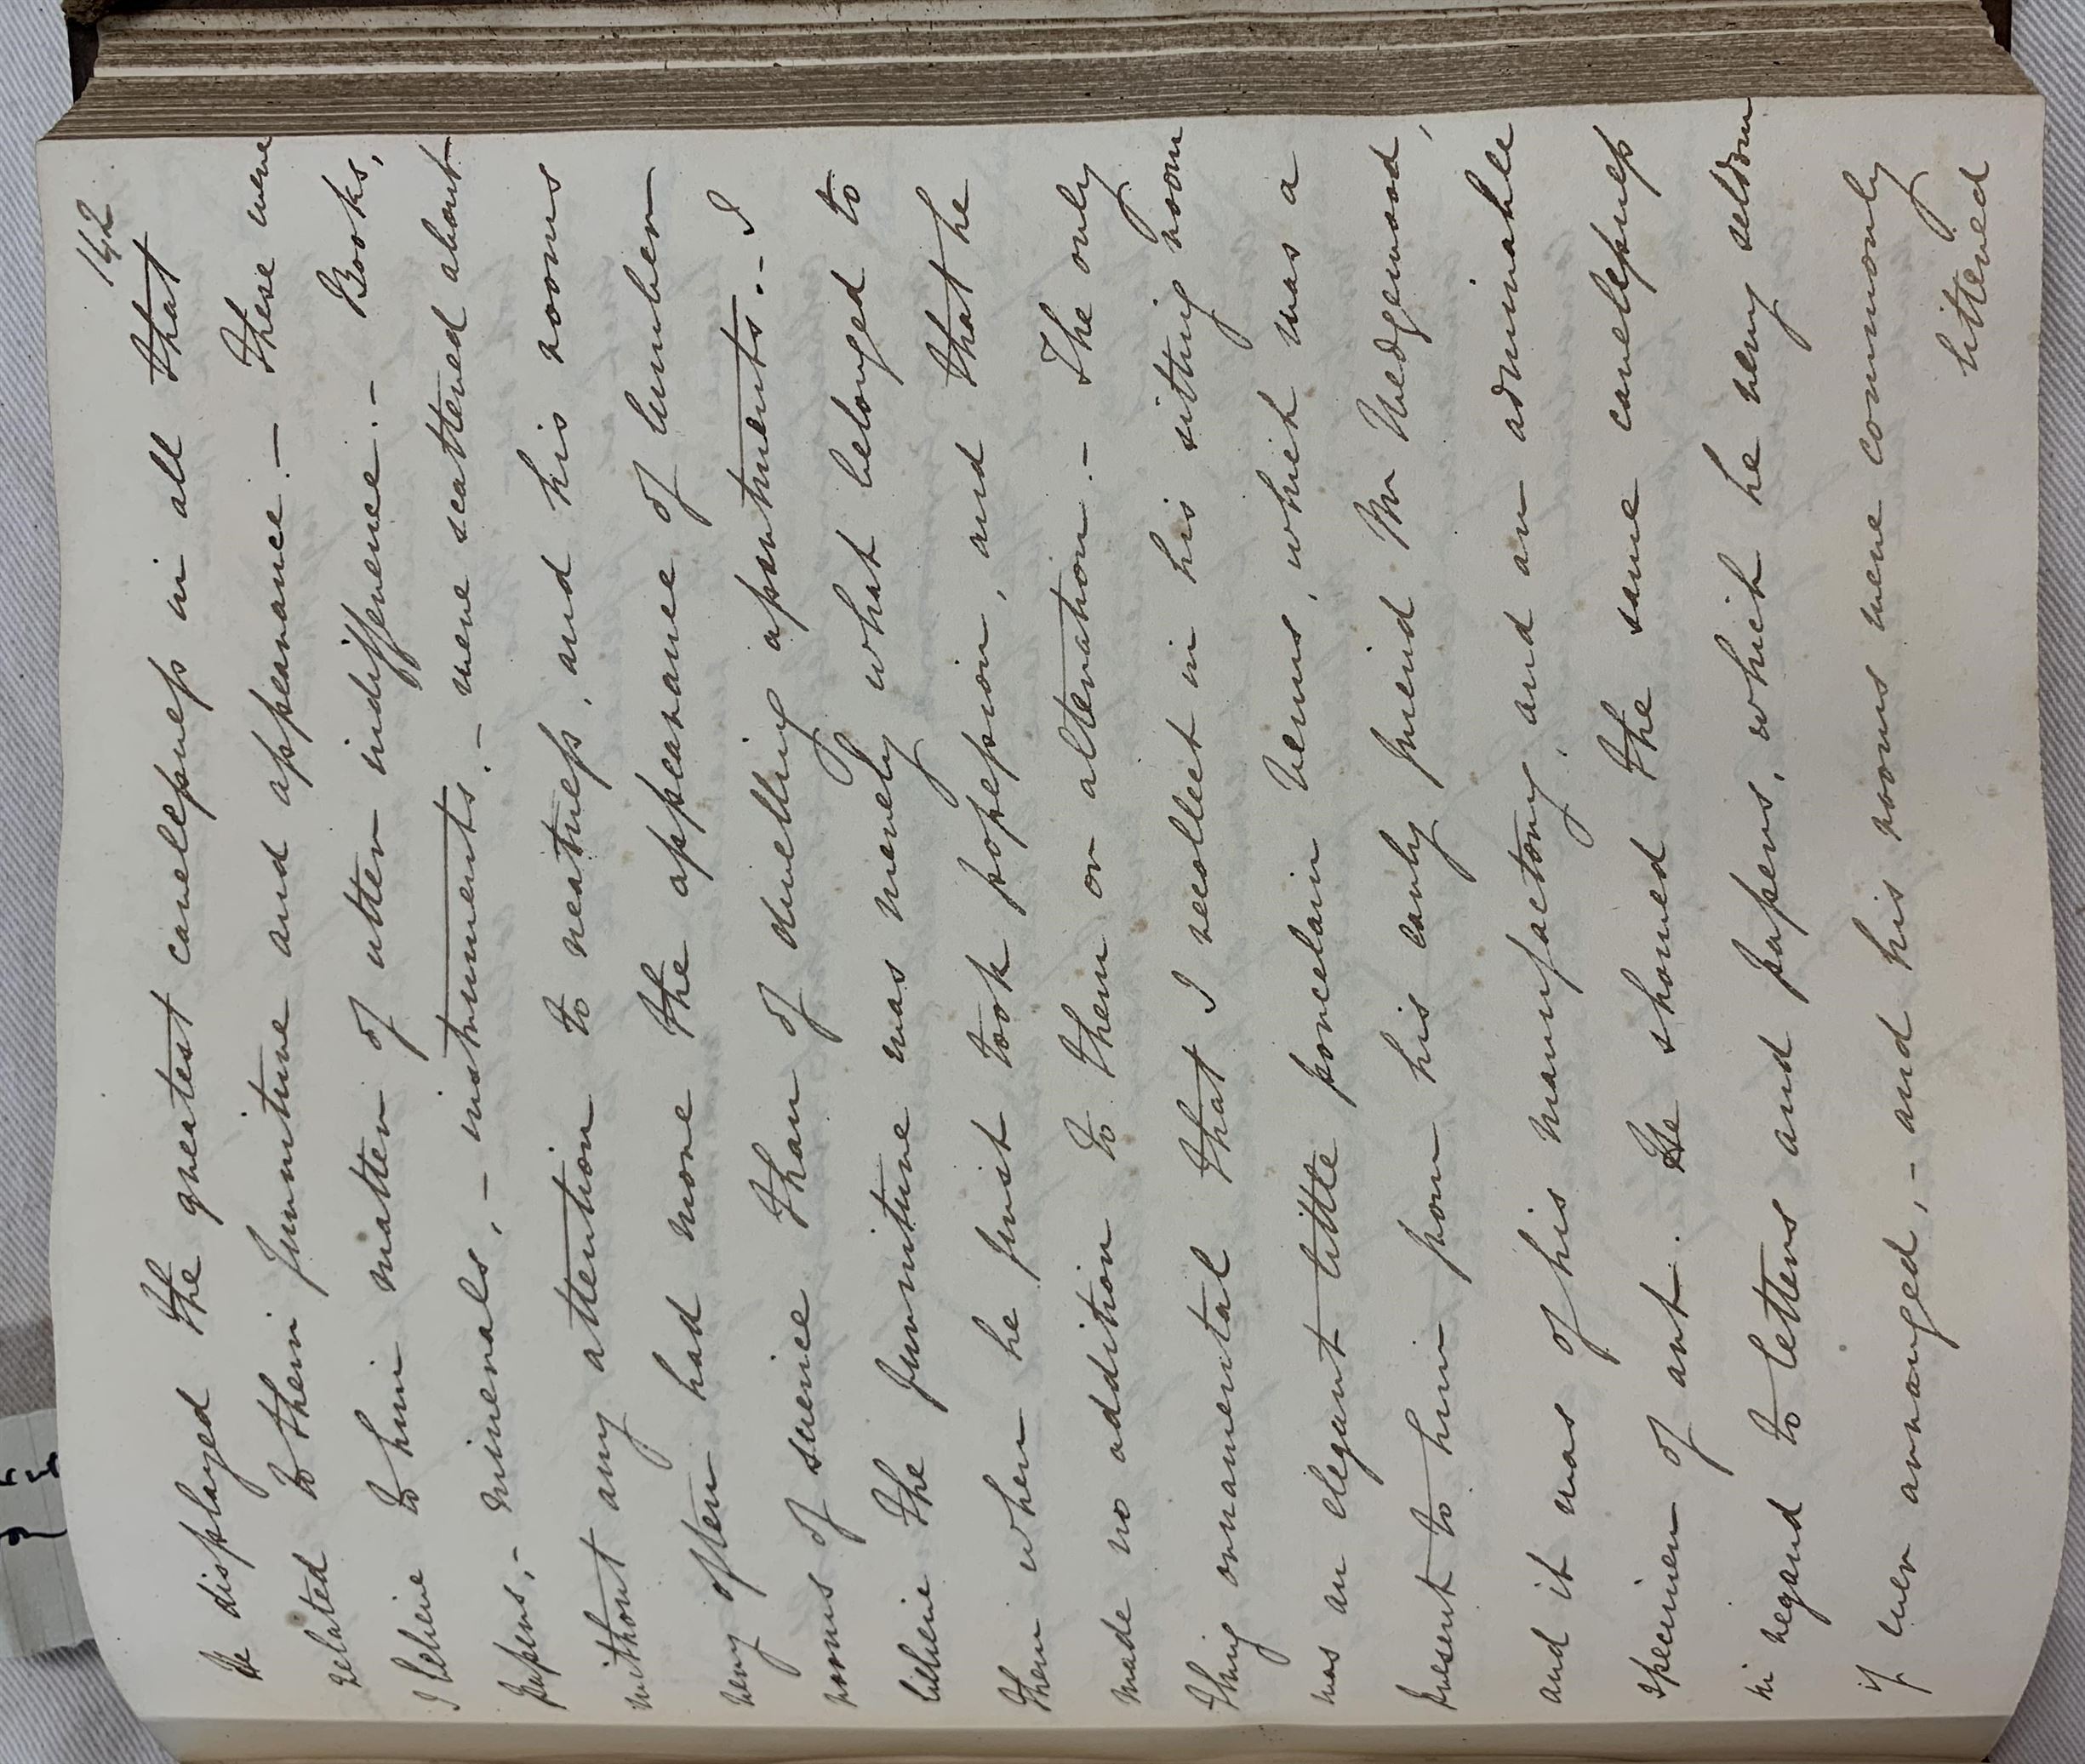 142
He displayed the greatest carelessness in all that
related to their furniture and appearance. — These were
I believe to him matter of utter indifference. — Books,
papers, — minerals, — instruments, — were scattered about
without any attention to neatness, and his rooms
very often had more the appearance of lumber
rooms of science than of dwelling apartments. — I
believe the furniture was merely what belonged to
them when he first took possession, and that he
made no addition to them or alteration. — The only
thing ornamental that I recollect in his sitting room
was an elegant little porcelain Venus, which was a
present to him from his early friend Mr Wedgewood,
and it was of his manufactory, and an admirable
specimen of art. He showed the same carelessness
in regard to letters and papers, which he very seldom
if ever arranged, — and his rooms were commonly
littered